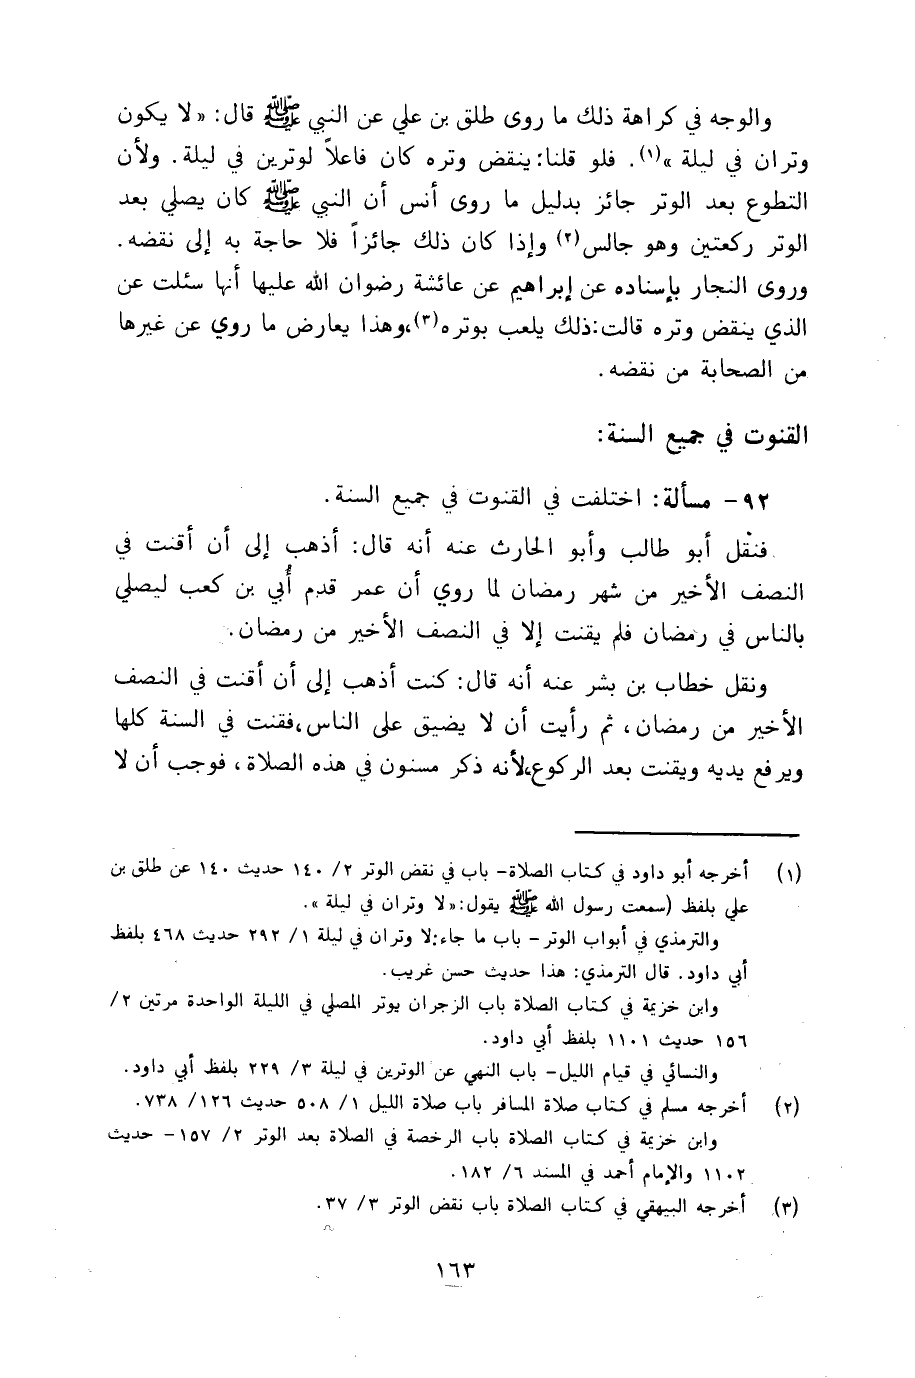 والوجه في كراهة ذلك ما روى طلق بن علي عن النبي ﷺ قال: « لا يكون
وتران في ليلة »(١). فلو قلنا: ينقض وتره كان فاعلاً لوترين في ليلة. ولأن
التطوع بعد الوتر جائز بدليل ما روى أنس أن النبي ﷺ كان يصلي بعد
الوتر ركعتين وهو جالس(٢) وإذا كان ذلك جائزاً فلا حاجة به إلى نقضه.
وروى النجار بإسناده عن إبراهيم عن عائشة رضوان الله عليها أنها سئلت عن
الذي ينقض وتره قالت:ذلك يلعب بوتره(٣)،وهذا يعارض ما روي عن غيرها
من الصحابة من نقضه.
القنوت في جميع السنة:
٩٢- مسألة: اختلفت في القنوت في جميع السنة.
فنقل أبو طالب وأبو الحارث عنه أنه قال: أذهب إلى أن أقنت في
النصف الأخير من شهر رمضان لما روي أن عمر قدم أُبي بن كعب ليصلي
بالناس في رمضان فلم يقنت إلا في النصف الأخير من رمضان.
ونقل خطاب بن بشر عنه أنه قال: كنت أذهب إلى أن أقنت في النصف
الأخير من رمضان، ثم رأيت أن لا يضيق على الناس،فقنت في السنة كلها
ويرفع يديه ويقنت بعد الركوع،لأنه ذكر مسنون في هذه الصلاة، فوجب أن لا
(١) أخرجه أبو داود في كتاب الصلاة- باب في نقض الوتر ٢/ ١٤٠ حديث ١٤٠ عن طلق بن
علي بلفظ (سمعت رسول الله ﷺ يقول:«لا وتران في ليلة ».
والترمذي في أبواب الوتر- باب ما جاء:لا وتران في ليلة ١/ ٢٩٢ حديث ٤٦٨ بلفظ
أبي داود. قال الترمذي: هذا حديث حسن غريب.
وابن خزيمة في كتاب الصلاة باب الزجران يوتر المصلي في الليلة الواحدة مرتين ٢/
١٥٦ حديث ١١٠١ بلفظ أبي داود.
والنسائي في قيام الليل- باب النهي عن الوترين في ليلة ٣/ ٢٢٩ بلفظ أبي داود.
(٢) أخرجه مسلم في كتاب صلاة المسافر باب صلاة الليل ١/ ٥٠٨ حديث ١٢٦/ ٧٣٨.
وابن خزيمة في كتاب الصلاة باب الرخصة في الصلاة بعد الوتر ٢/ ١٥٧- حديث
١١٠٢ والإمام أحمد في المسند ٦/ ١٨٢.
(٣) أخرجه البيهقي في كتاب الصلاة باب نقض الوتر ٣/ ٣٧.
١٦٣